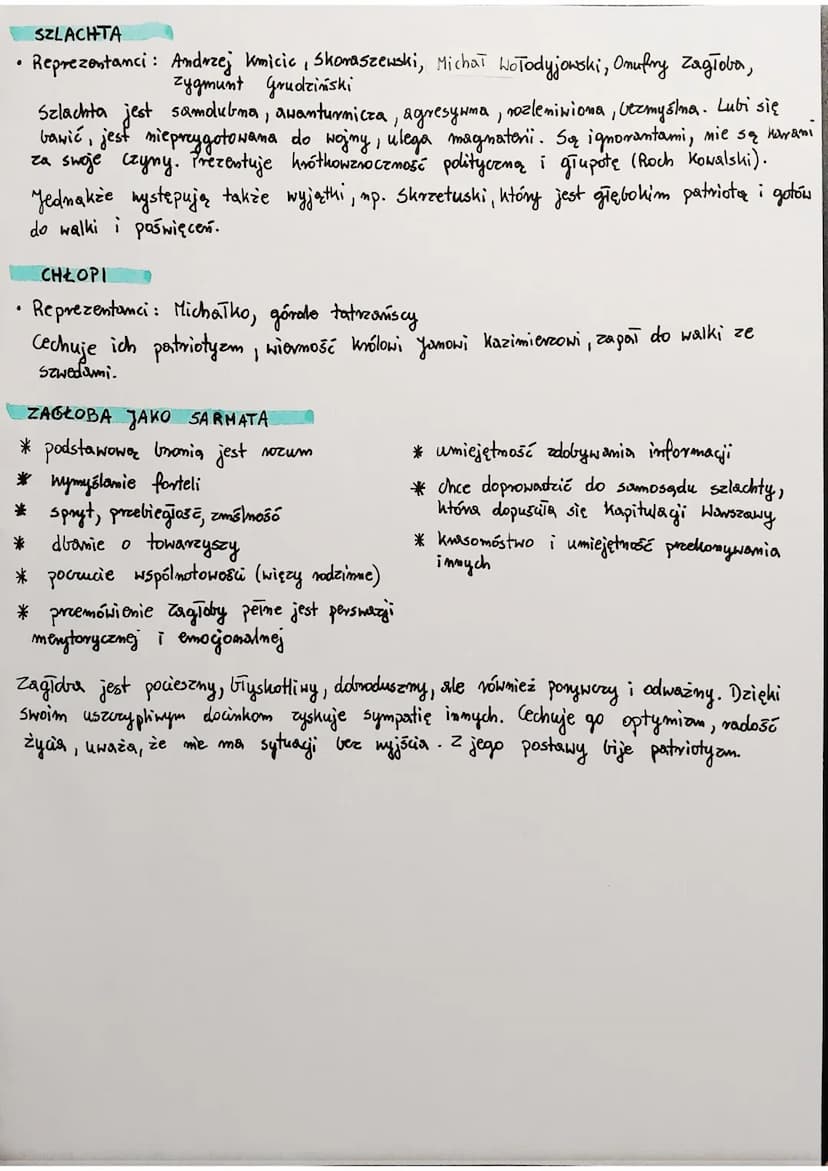 SZLACHTA
• Reprezentanci: Andrzej Kmicic, Skoraszewski, Michał Wołodyjowski, Onufry Zagłoba,
Zygmunt Grudziński
Szlachta jest samolubna, awanturnicza, agresywna, rozleniwiona, bezmyślna. Lubi się
bawić, jest nieprzygotowana do wojny, ulega magnaterii. Są ignorantami, nie są karani
za swoje czyny. Prezentuje krótkowzroczność polityczną i głupotę (Roch Kowalski).
Jednakże występują także wyjątki, np. Skrzetuski, który jest głębokim patriotą i gotów
do walki i poświęceń.
CHŁOPI
• Reprezentanci: Michałko, górale tatrzańscy
Cechuje ich patriotyzm, wierność królowi Janowi Kazimierzowi, zapał do walki ze
Szwedami.
ZAGŁOBA JAKO SARMATA
* podstawową bronią jest rozum
* wymyślanie forteli
* spryt, przebiegłość, zmyślność
* dbanie o towarzyszy
* poczucie wspólnotowości (więzy rodzinne)
* przemówienie Zagłoby pełne jest perswazji
merytorycznej i emocjonalnej
* umiejętność zdobywania informacji
* chce doprowadzić do samosądu szlachty,
która dopuściła się kapitulacji Warszawy
* krasomóstwo i umiejętność przekonywania
innych
Zagłoba jest pocieszny, błyskotliwy, dobroduszny, ale również porywczy i odważny. Dzięki
swoim uszczypliwym docinkom zyskuje sympatię innych. Cechuje go optymizm, radość
życia, uważa, że nie ma sytuacji bez wyjścia. Z jego postawy bije patriotyzm.